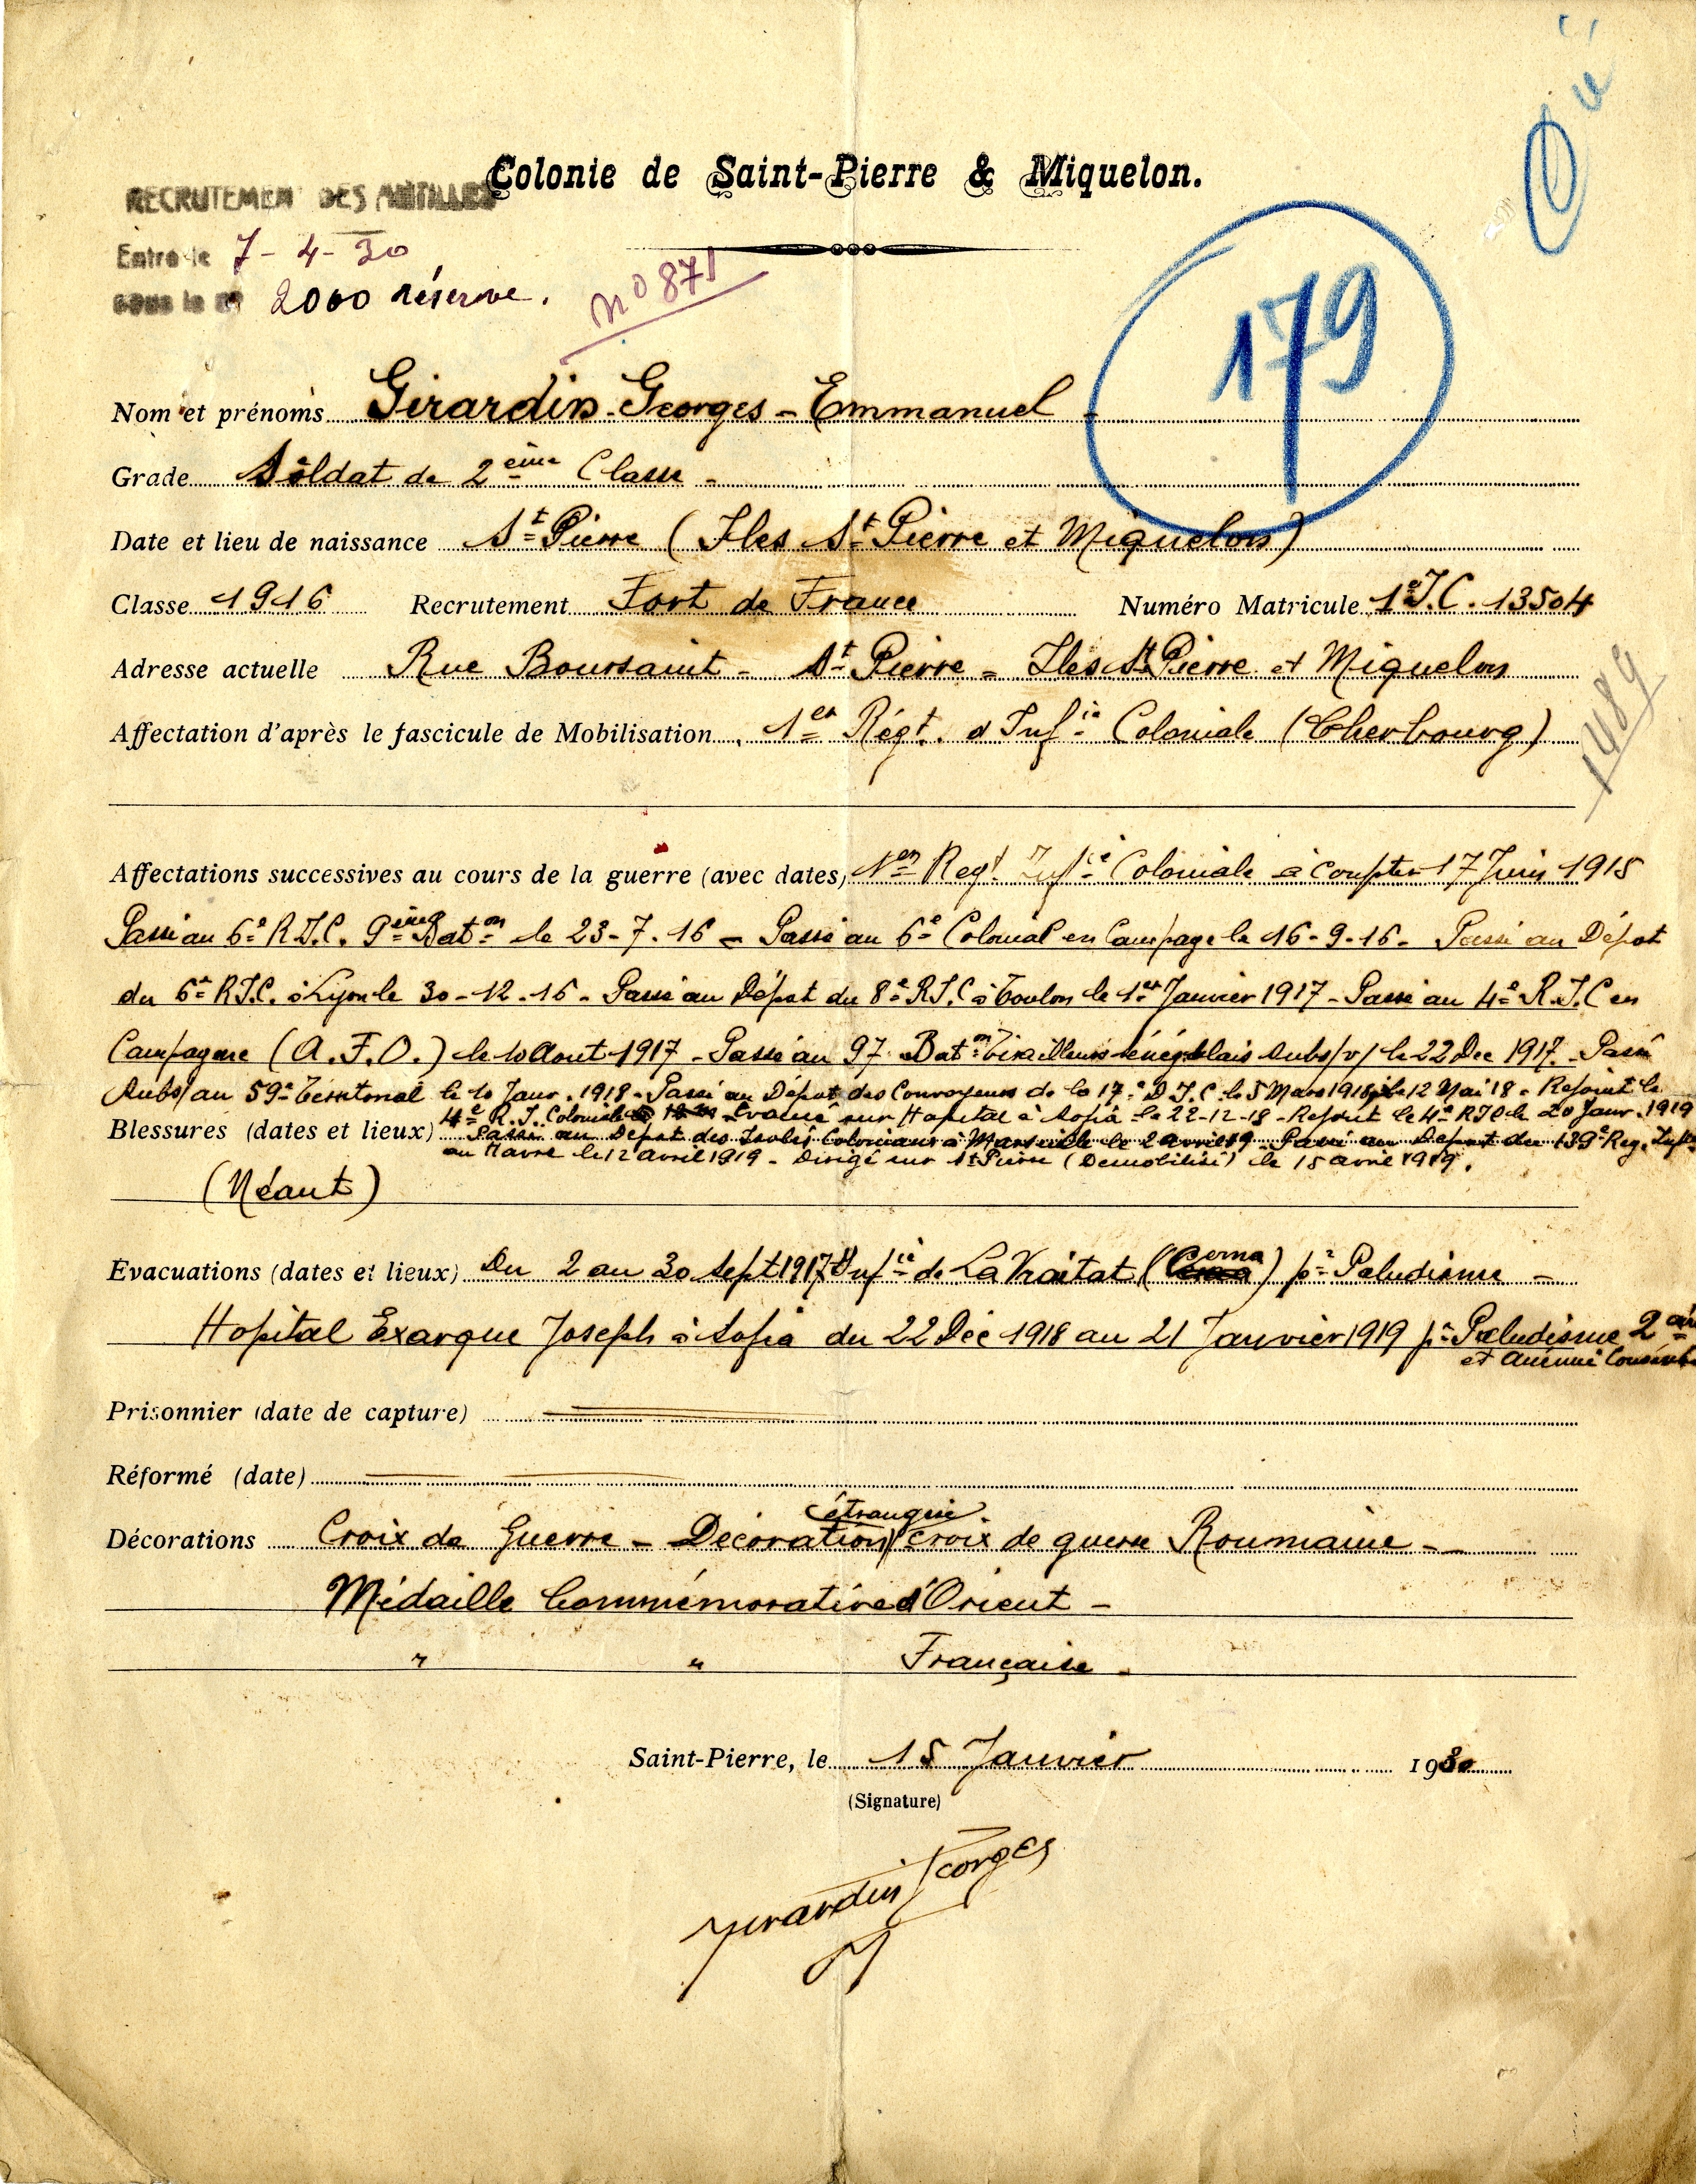 Colonie de Saint-Pierre & Miquelon.
RECRUTEMEN DES ANTILLES
Entré le 7-4-30
sous le n° 2000 réserve.
n° 871
179
Nom et prénoms Girardin-Georges-Emmanuel-
Grade Soldat de 2ème Classe-
Date et lieu de naissance St Pierre (Iles St Pierre et Miquelon)
Classe 1916 Recrutement Fort de France Numéro Matricule 1e I.C. 13504
Adresse actuelle Rue Boursaint - St Pierre = Iles St Pierre et Miquelon
1489
Affectation d'après le fascicule de Mobilisation 1er Régt. d'Infie Coloniale (Cherbourg)
Affectations successives au cours de la guerre (avec dates) 1er Regt Infie Coloniale à compter 17 Juin 1915
Passé au 6e R.I.C. 9ème Baton le 23-7-16 - Passé au 6e Colonial en Campagne le 16-9-16 - Passé au Dépot
du 6e R.I.C. à Lyon le 30-12-16 - Passé au Dépot du 8e R.I.C à Toulon le 1er Janvier 1917 - Passé au 4e R.I.C en
Campagne (A.F.O.) le 10 Aout 1917 - Passé au 97 Baton Tirailleurs Sénégalais Subs/v/ le 22 Dec 1917 - Passé
Subs/ au 59e Territorial le 10 Janv. 1918 - Passé au Dépot des Convoyeurs de la 17e D.I.C. le 5 Mars 1918 le 12 Mai 18 - Rejoint le
4e R.I. Coloniale Evacué sur Hopital à Sofia le 22-12-18 - Rejoint le 4e RIC le 20 Janv. 1919
Blessures (dates et lieux) Passé au Dépot des Isolés Coloniaux à Marseille le 2 avril 19 Passé au Dépot du 139e Reg. Infie
au Havre le 12 avril 1919 - Dirigé sur St Pierre (Démobilisé) le 15 avril 1919.
(Néant)
Evacuations (dates et lieux) Du 2 au 30 Sept 1917 Infie de La Vraitat (Cerna) pr Paludisme -
Hopital Exarque Joseph à Sofia du 22 Déc 1918 au 21 Janvier 1919 pr Paludisme
et anémie
Prisonnier (date de capture)
Réformé (date)
étrangère
Décorations Croix de Guerre - Décoration Croix de guerre Roumaine -
Médaille Commémorative d'Orient -
" " Française -
Saint-Pierre, le 15 Janvier 1930
(Signature)
Girardin Georges